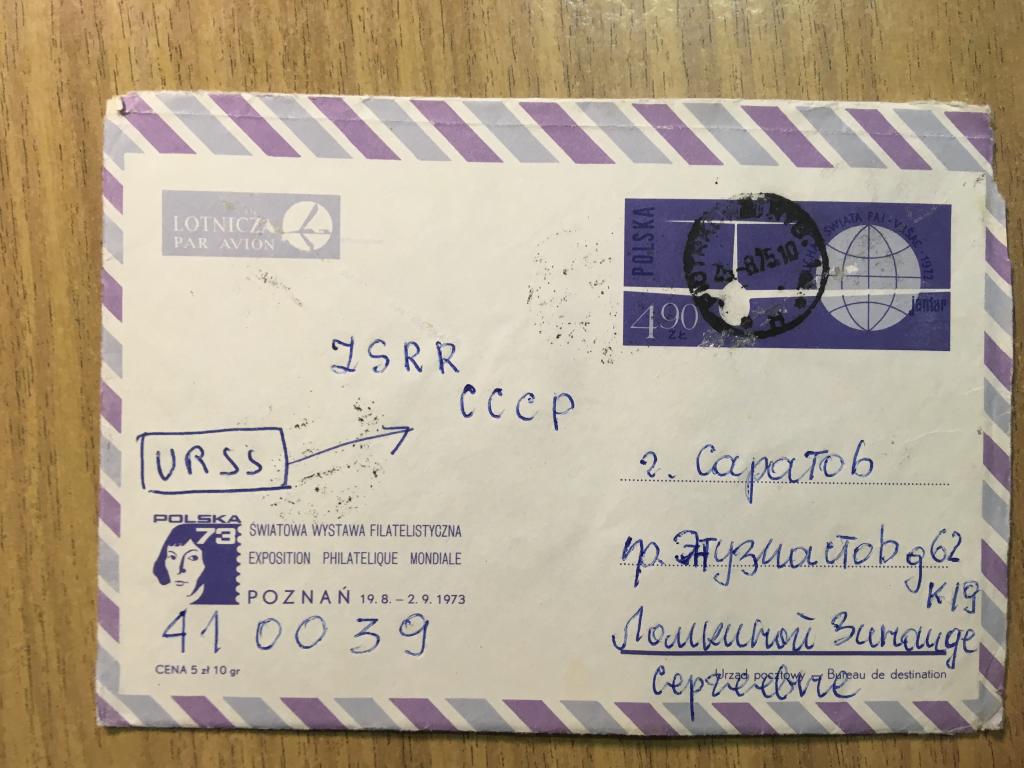 LOTNICZA
PAR AVION
POLSKA
ŚWIATA FAI - VRSAC 1972
jantar
4.90
ZŁ
25.-8.75.10
ZSRR
СССР
URSS
г. Саратов
пр. Энтузиастов д 62
к 19
Ломкиной Зинаиде
Сергеевне
POLSKA
73
ŚWIATOWA WYSTAWA FILATELISTYCZNA
EXPOSITION PHILATELIQUE MONDIALE
POZNAŃ 19.8. – 2.9. 1973
41 00 39
CENA 5 zł 10 gr
Urząd pocztowy — Bureau de destination